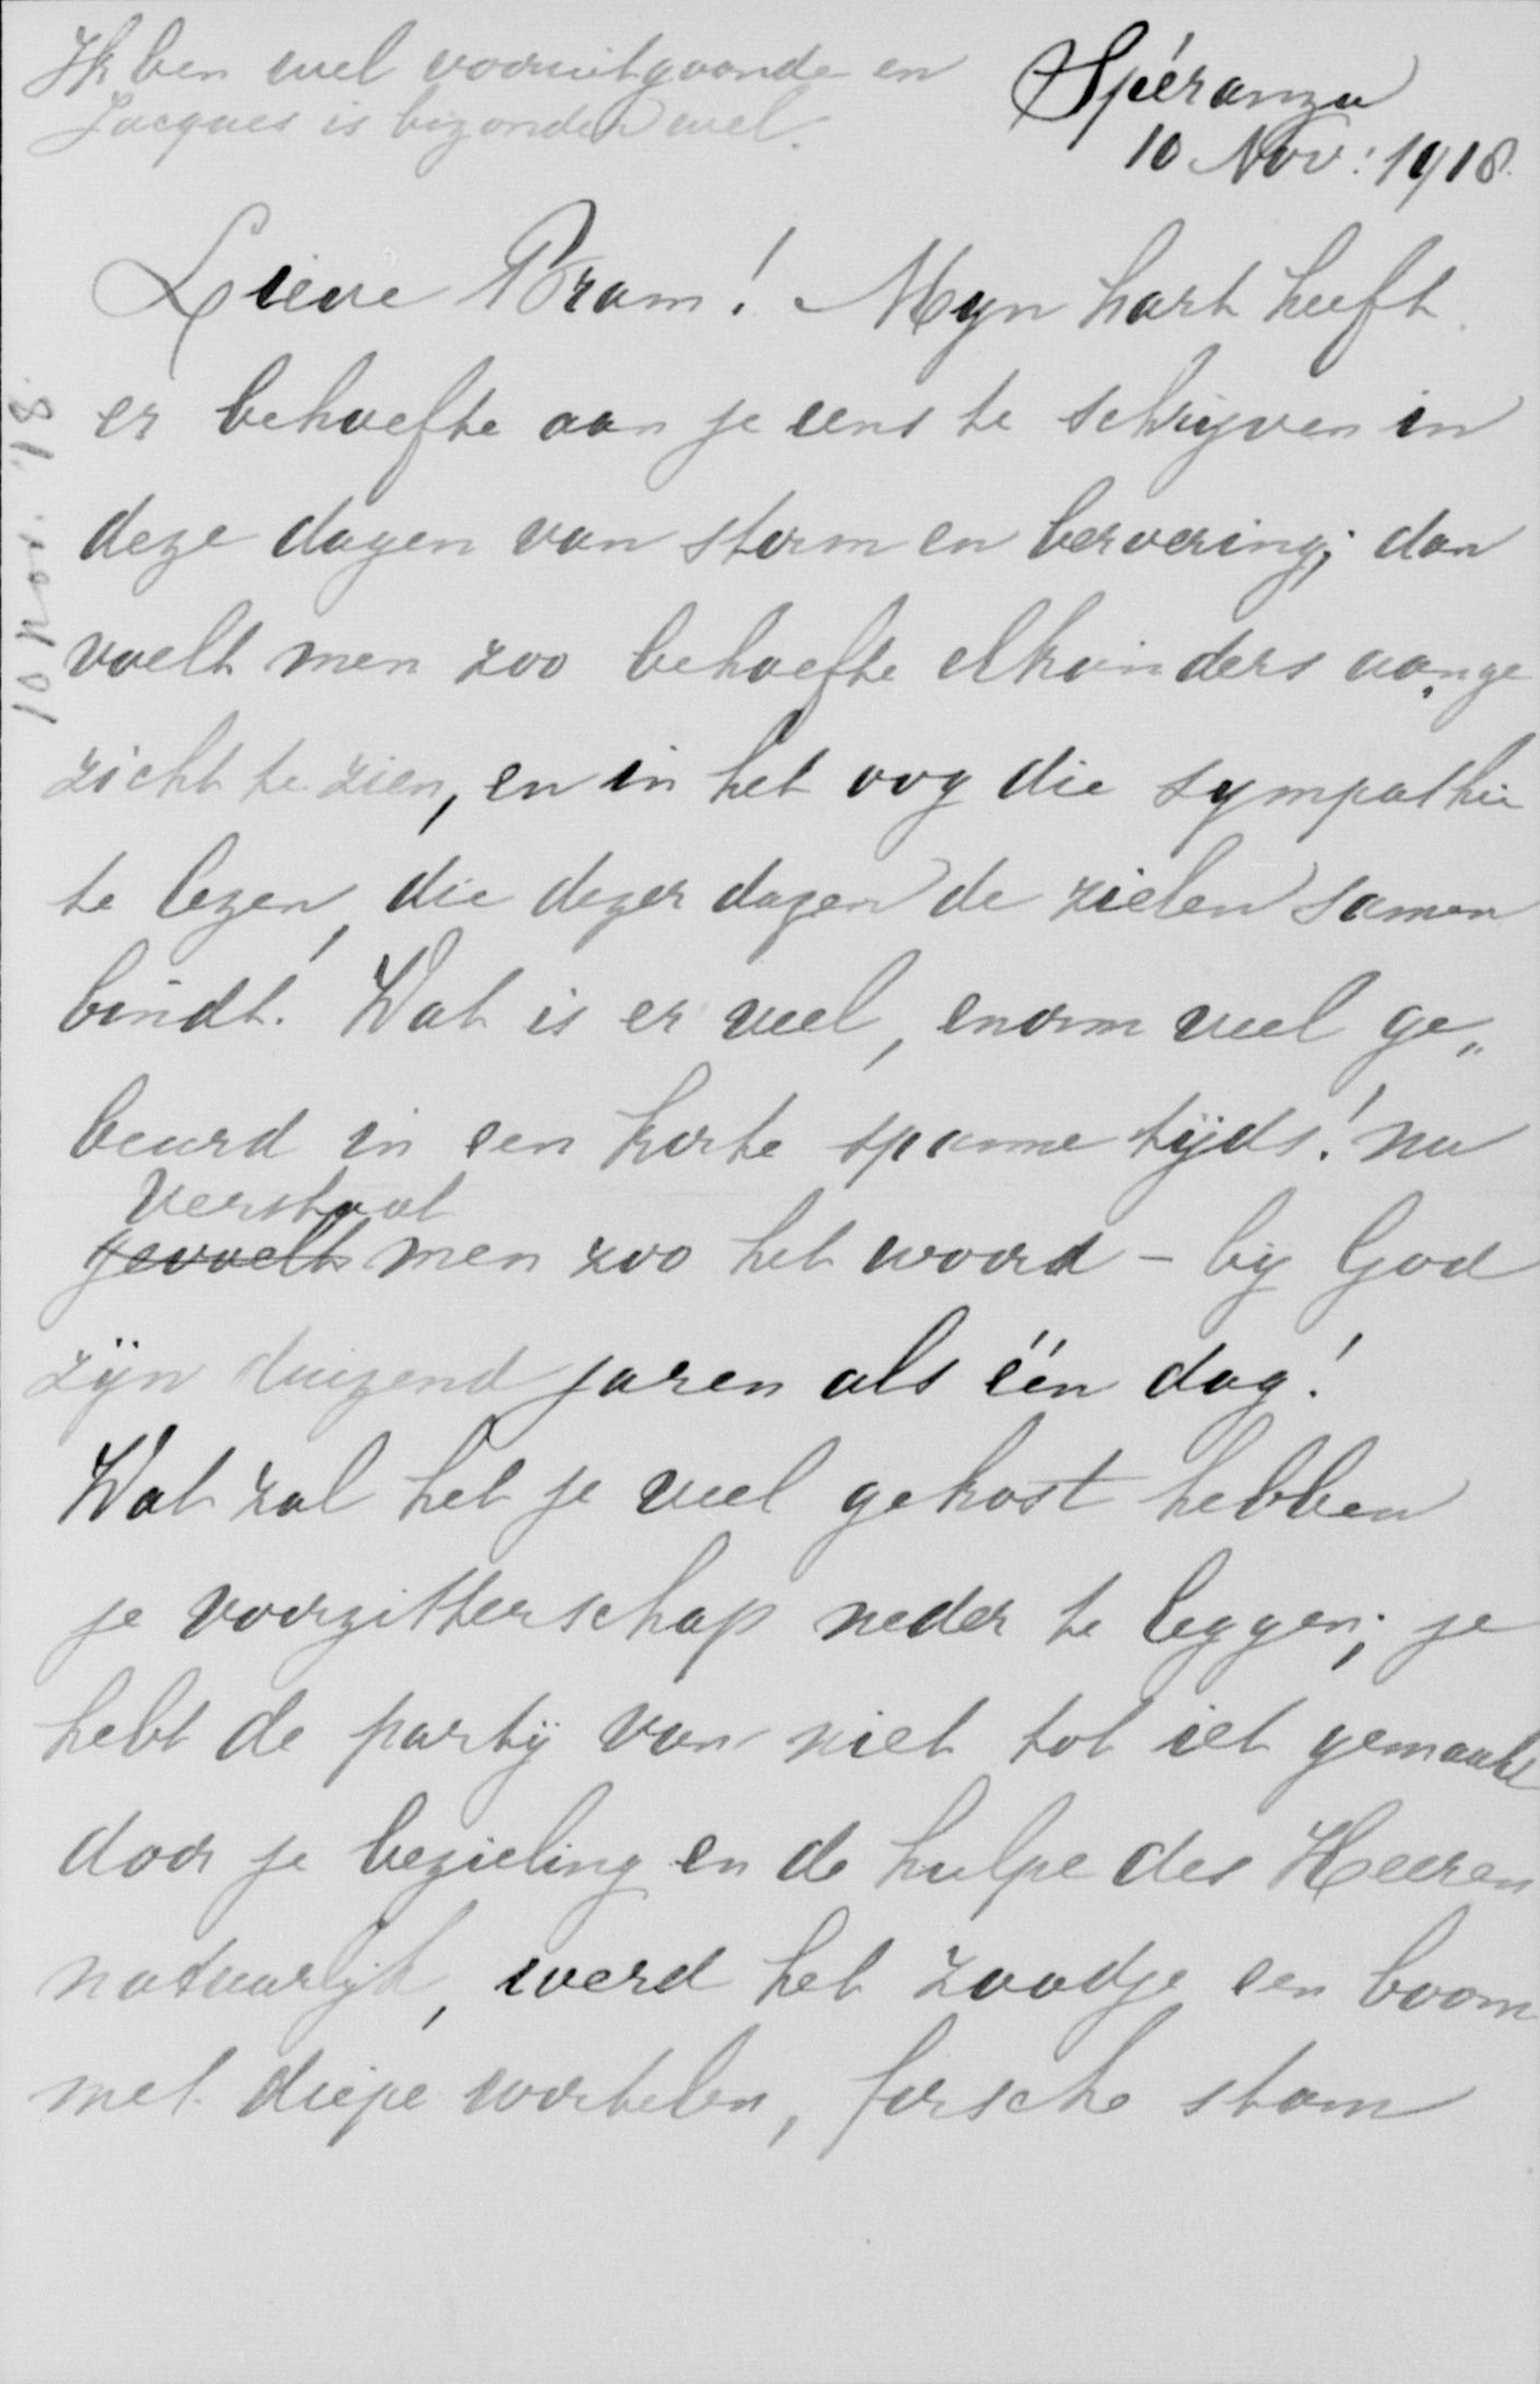 Ik ben wel vooruitgaande en
Jacques is bizonder wel.
Spéranza
10 Nov: 1918.
10 Nov. 18.
Lieve Bram! Myn hart heeft
er behoefte aan je eens te schrijven in
deze dagen van storm en beroering; dan
voelt men zoo behoefte elkanders aange
zicht te zien, en in het oog die sympathie
te lezen, die dezer dagen de zielen samen
bindt! Wat is er veel, enorm veel ge„
beurd in een korte spanne tijds! nu
verstaat
~~gevoelt~~ men zoo het woord - bij God
zijn duizend jaren als één dag!
Wat zal het je veel gekost hebben
je voorzitterschap neder te leggen; je
hebt de partij van niet tot iet gemaakt
door je bezieling en de hulpe des Heeren
natuurlijk, werd het zaadje een boom
met diepe wortelen, forsche stam